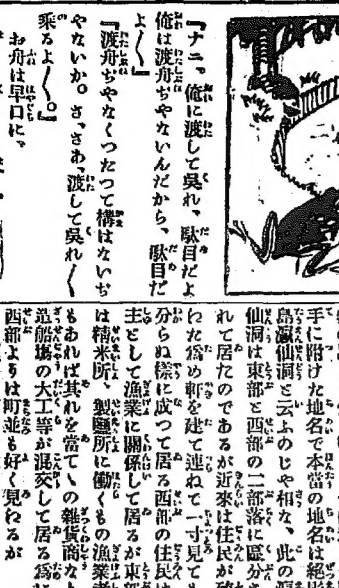 『ナニ、俺に渡して呉れ、駄目だよ
俺は渡舟ぢやないんだから、駄目だ
よ〳〵』
『渡舟ぢやなくつたつて構はないぢ
やないか。さ、さあ、渡して呉れ〳〵
乗るよ〳〵。』
お舟は早口に、
手に附けた地名で本當の地名は絕
島瀛仙洞と云ふのじや和な、此の瀛
仙洞は東部と西部の二部落に區分
れて居たのであるが近來は住民が
ねた爲め軒を建て連ねて一寸見ても
分らぬ樣に成つて居る西部の住民は
主として漁業に關係して居るが東部
は精米所、製鹽所に働くもの漁業者
もあれば其れを當て丶の雜貨商な
造船場の大工等が混交して居る爲
西部よりは町並も好く見ねるが